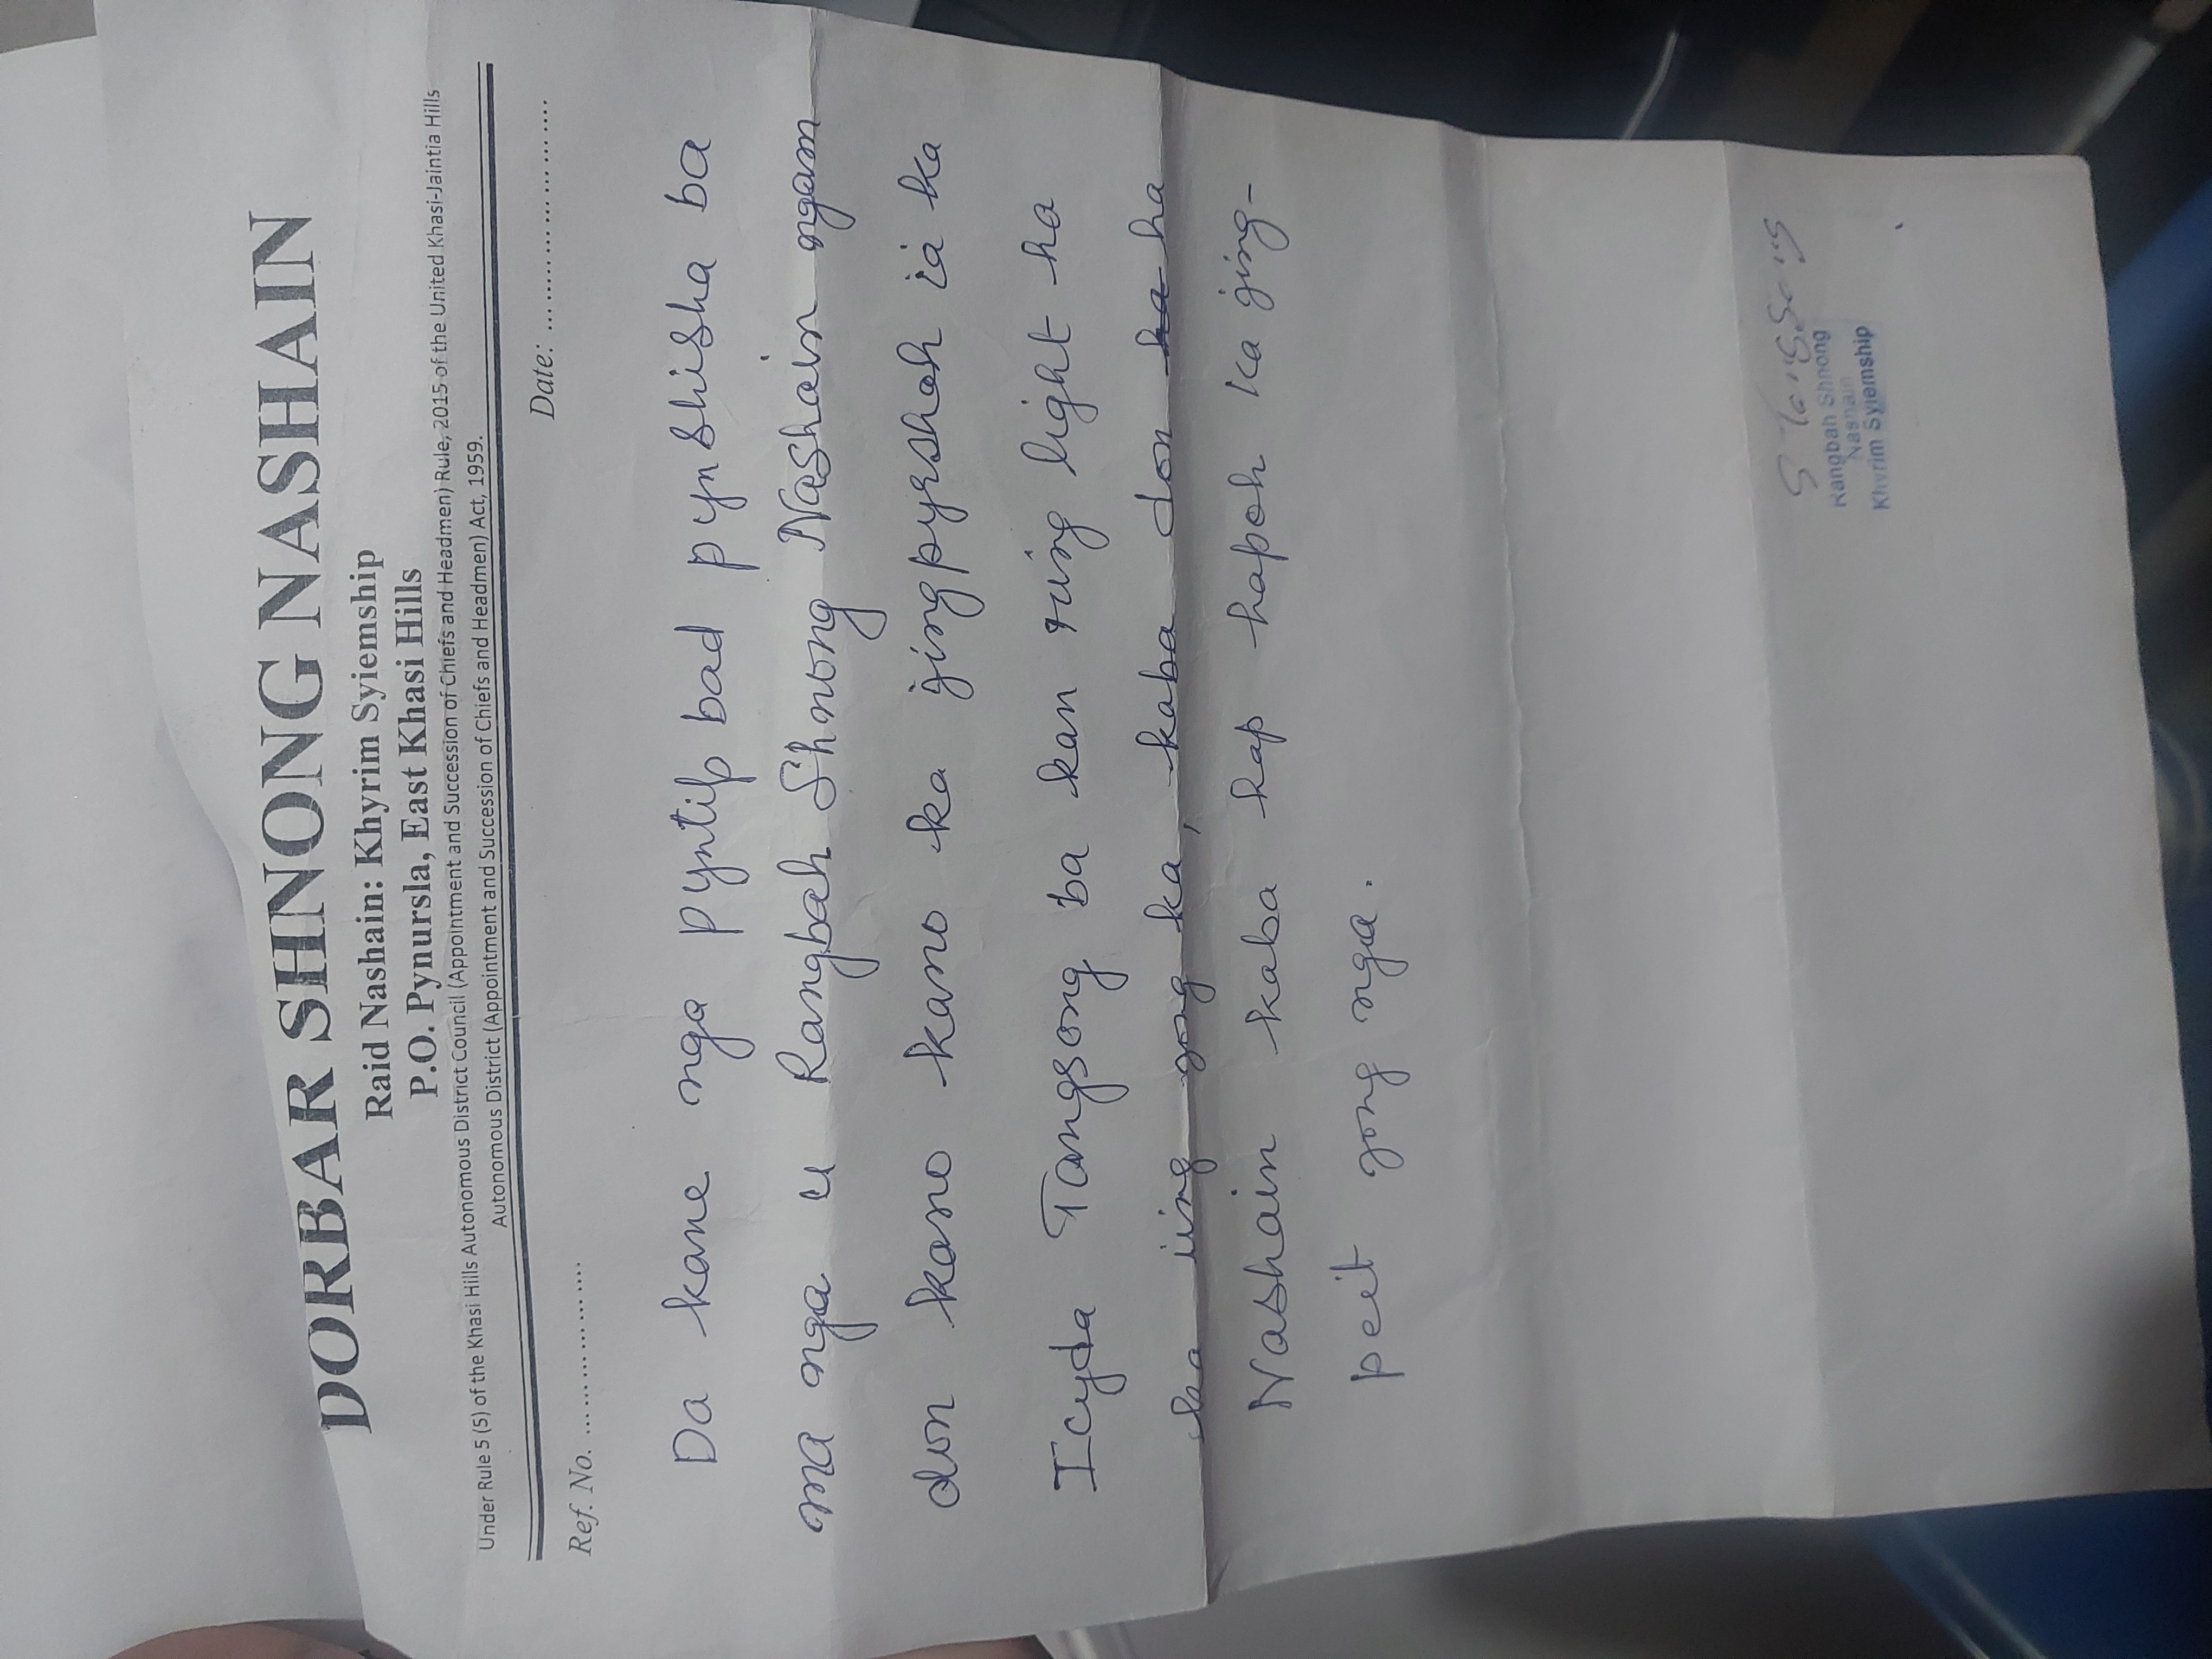 DORBAR SHNONG NASHAIN
Raid Nashain: Khyrim Syiemship
P.O. Pynursla, East Khasi Hills
Under Rule 5 (5) of the Khasi Hills Autonomous District Council (Appointment and Succession of Chiefs and Headmen) Rule, 2015 of the United Khasi-Jaintia Hills
Autonomous District (Appointment and Succession of Chiefs and Headmen) Act, 1959.
Ref. No. .................... Date: ........................
Da kane nga pyntip bad pynshisha ba
ma nga u Rangbah Shnong Nashain ngam
don kano kano ka jingpyrshah ïa ka
Icyda Tangsong ba kan rung light ha
ka iing jong ka, kaba don ha ha
Nashain kaba hap hapoh ka jing-
peit jong nga.
S Tangsong
Rangbah Shnong
Nashain
Khyrim Syiemship